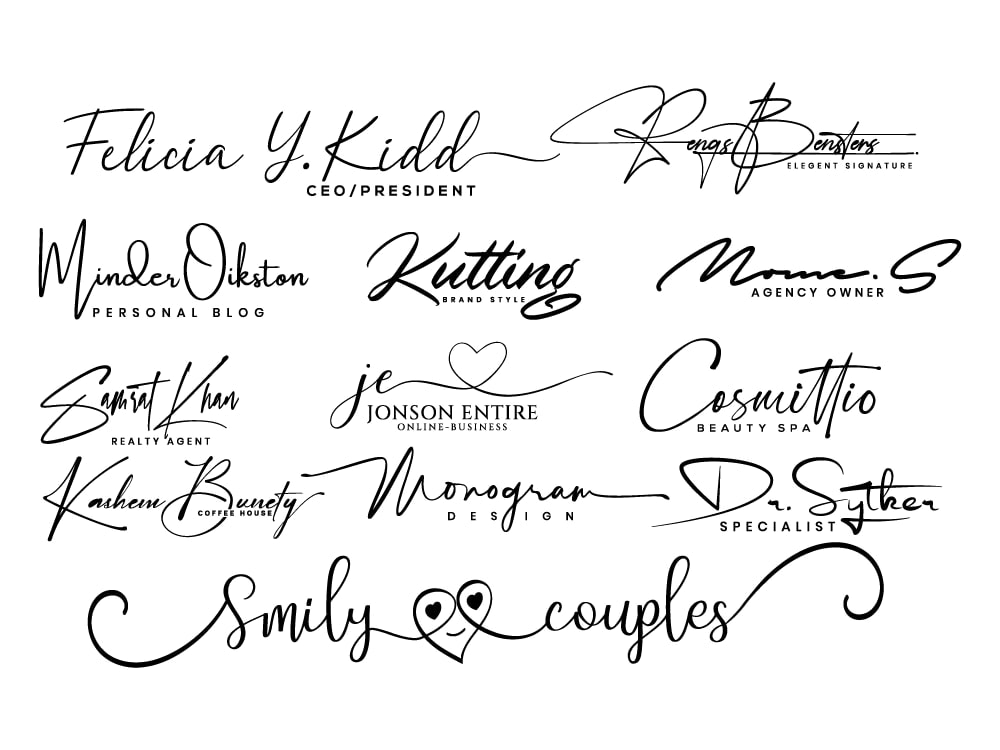 Felicia Y. Kidd
CEO/PRESIDENT
Rengs Bensters
ELEGENT SIGNATURE
Minder Oikston
PERSONAL BLOG
Kutting
BRAND STYLE
Mome. S
AGENCY OWNER
Samrat Khan
REALTY AGENT
je
JONSON ENTIRE
ONLINE-BUSINESS
Cosmittio
BEAUTY SPA
Kashem Bunety
COFFEE HOUSE
Monogram
DESIGN
Dr. Sytker
SPECIALIST
Smily couples